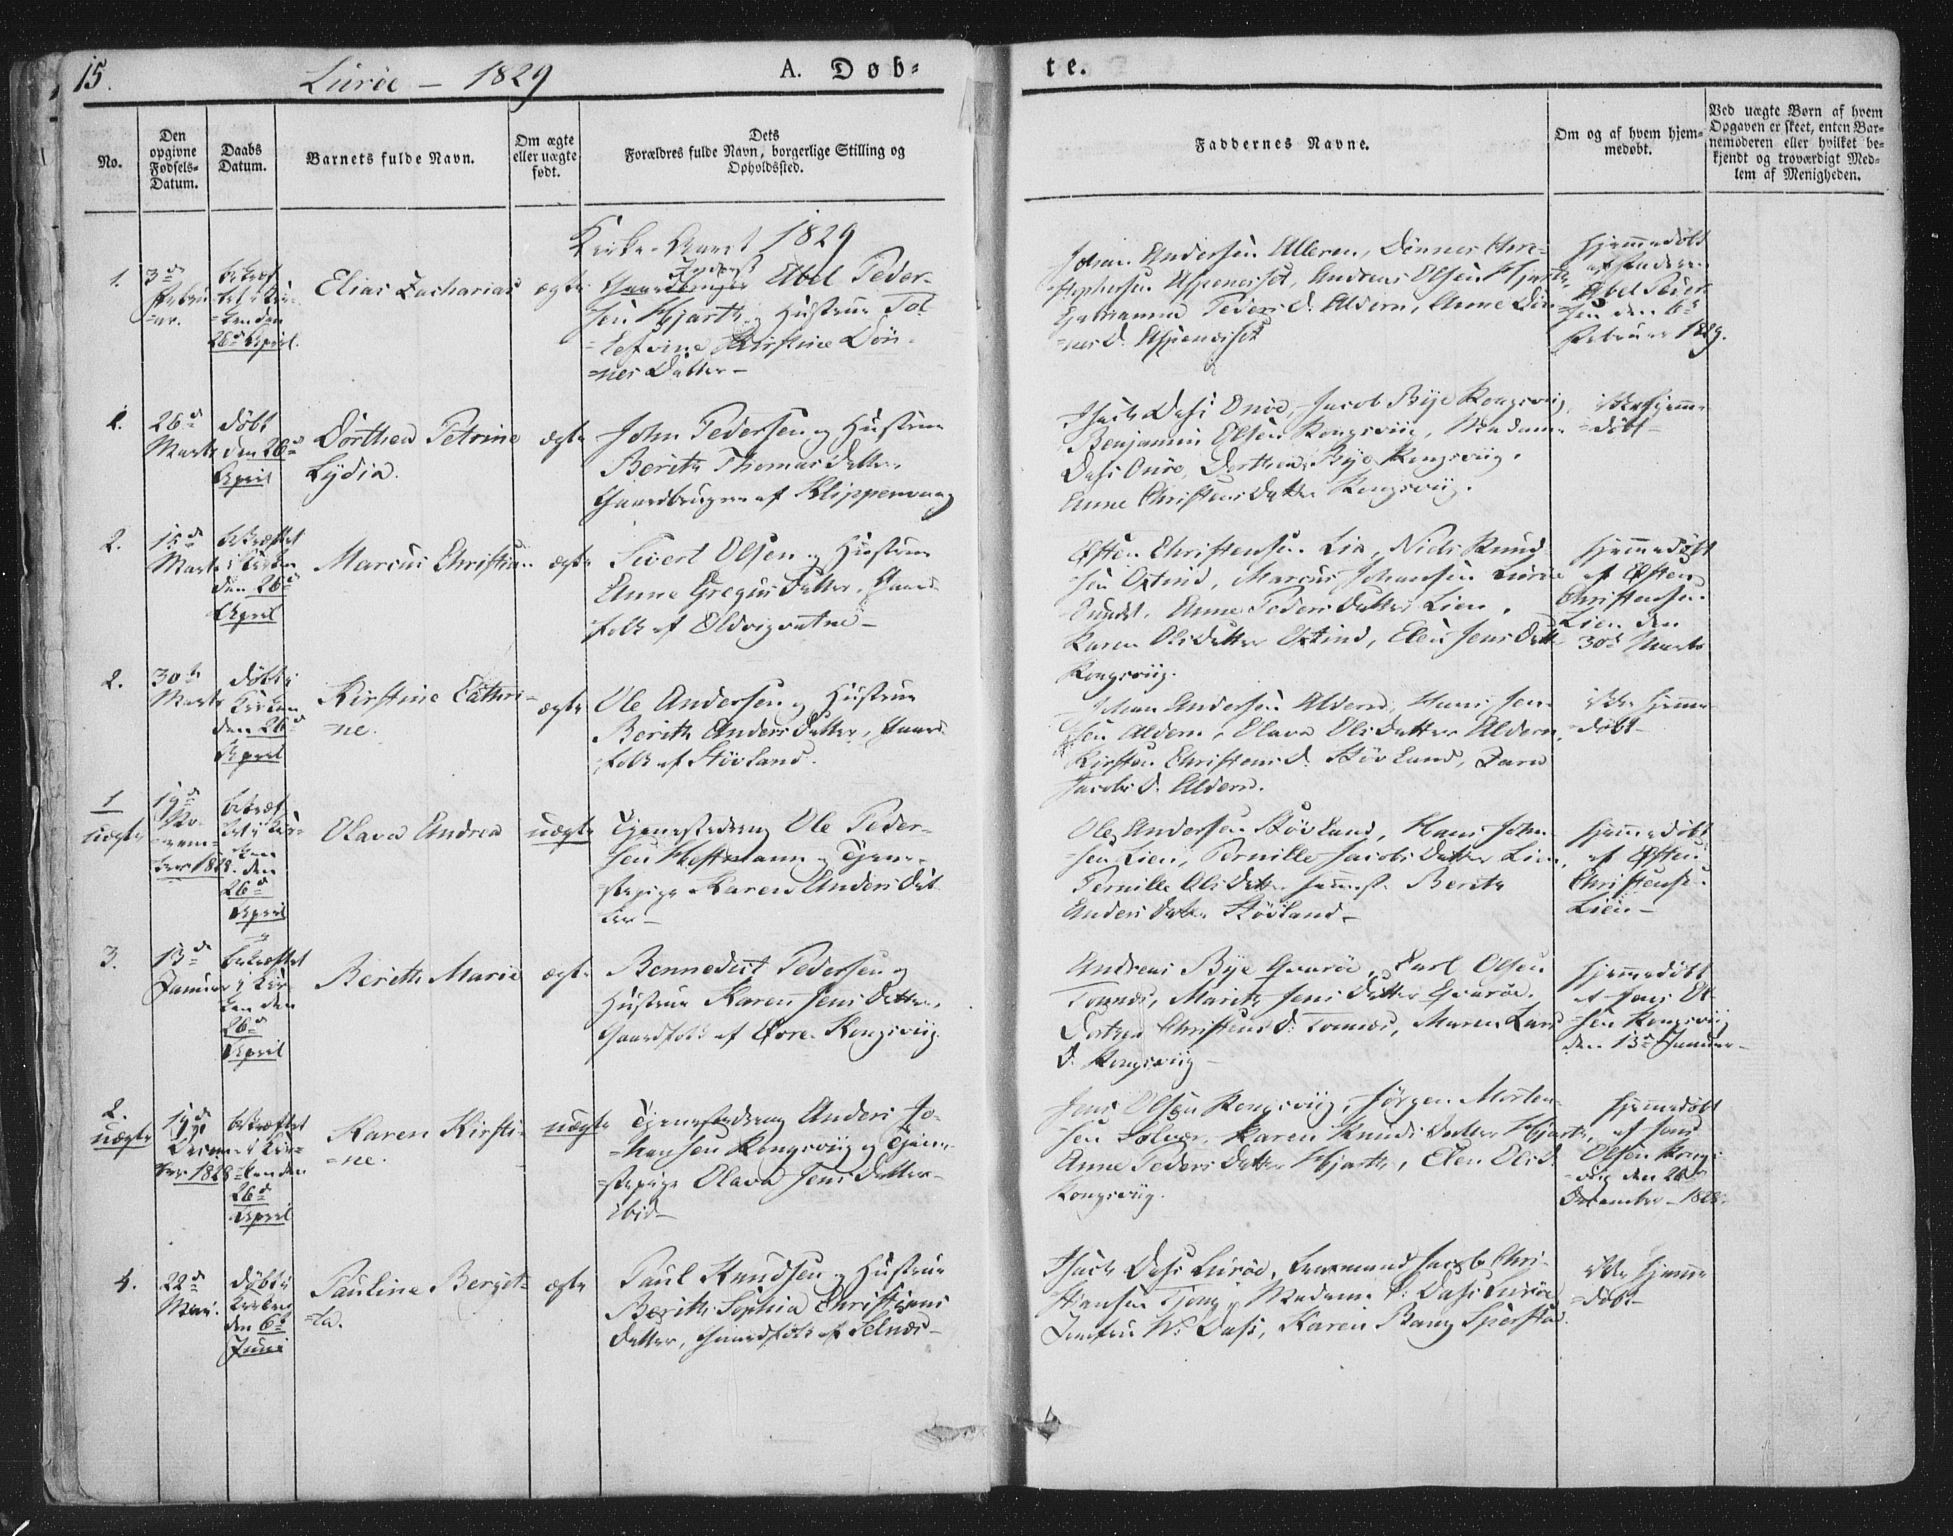 15.
Lürøe – 1829
A. Døb-
te.
No.
Den
opgivne
Fødsels-
Datum.
Daabs
Datum.
Barnets fulde Navn.
Om ægte
eller uægte
født.
Dets
Forældres fulde Navn, borgerlige Stilling og
Opholdssted.
Faddernes Navne.
Om og af hvem hjem-
medøbt.
Ved uægte Børn af hvem
Opgaven er skeet, enten Bar-
nemoderen eller hvilket be-
kjendt og troværdigt Med-
lem af Menigheden.
Kirke-Aaret 1829
1.
3d
Febru-
-ar.
bekræf-
tet i Kir-
-ken den
26d April.
Elias Zacharias
ægte
Abel Peder-
sen Hjarth og Hustrue
Kirstine Døn-
=nes Datter –
Johan Andersen Alleren, Dønnes Chri-
stophersen, Andreas Olsen Hjarth,
Peders D. Aldern, Anne Døn-
nes D.
hjemmedøbt
af
Abel Peder-
sen den 6te
Februar 1829.
26d
Marts
døbt
den 26d
April
Dorthea Petrine
Lydia.
ægte
John Pedersen og Hustrue
Berith Thomas Datter
Gaardbruger af Klippenvaag
Dass Onøe, Jacob Bye Kongsviig
Benjamin Olsen Kongsviig, Madam
Dass, Dorthea Bye Kongsviig,
Anne Christens Datter Kongsviig.
ikke hjemme-
=døbt
2.
15d
Marts
bekræftet
i Kirken
den 26d
April
Marcus Christian
ægte
Sivert Olsen og Hustrue
Anne Gregus Datter, Gaard-
folk af Oldvigvatne –
Christensen Lien, Niels Knud-
sen, Marcus Johansen Lürøe
Anne Peders Datter Lien,
Karen Ols Datter, Elen Jens Datt
Kongsviig.
hjemmedøbt
af Østen
Christensen
Lien den
30d Marts
2.
30te
Marts
døbt i
Kirken
den 26d
April
Kirstine Cathri-
=ne.
ægte
Ole Andersen og Hustrue
Berith Anders Datter, Gaard-
folk af Støvland.
Johan Andersen Aldern, Hans Jen-
sen Aldern, Olava Ols Datter Aldern,
Kirsten Christens D. Støvland,
Jacobs D. Aldern.
ikke hjemme-
=døbt –
1
uægte
19d
No-
=vem-
ber 1828.
bekræf-
tet i Kir-
ken
den
26d
April
Olava Andrea
uægte
Tjenestedreng Ole Peder-
sen Hoffmann og Tjene-
stepige Karen Anders Dat-
ter –
Ole Andersen Støvland, Hans John-
sen Lien, Pernille Jacobs Datter Lien,
Pernille Ols Datter, Berith
Anders Datter Støvland –
hjemmedøbt
af Østen
Christensen
Lien –
3.
13d
Januar
bekræftet
i Kir-
ken den
26d
April
Berith Marie
ægte
Bennedict Pedersen og
Hustrue Karen Jens Datter,
Gaardfolk af Øvre Kongsviig
Andreas Bye Qvarøe, Carl Olsen
Tonnes, Marith Jens Datter Qvarøe,
Christens D. Tonnes, Maren Lars
D. Kongsviig –
hjemmedøbt
af Jens Ol-
sen Kongsviig
den 13d Januar –
2.
uægte
19de
Decem-
ber 1828
bekræftet
i Kir-
=ken den
26d
April
Karen Kirsti-
=ne.
uægte
Tjenestedreng Anders Jo-
=hansen Kongsviig og Tjene-
stepige Olava Jens Datter
ibid –
Jens Olsen Kongsviig, Jørgen Morten-
sen Solvær, Karen Knuds Datter Hjarth,
Anne Peders Datter Hjarth, Elen Ols D.
Kongsviig.
hjemmedøbt
af Jens
Olsen Kongs-
=viig den 26d
December – 1828.
4.
22d
Mai.
døbt i
Kirken
den 6te
Juni
Pauline Bergit-
=ta.
ægte
Paul Knudsen og Hustrue
Berith Sophia Christians
Datter, Gaardfolk af Selnæs –
Dass Lürøe, Jacob Chri-
stiansen Tjong, Madame Dass Lürøe,
Jomfru Dass, Karen Bang
ikke hjemme-
=døbt –